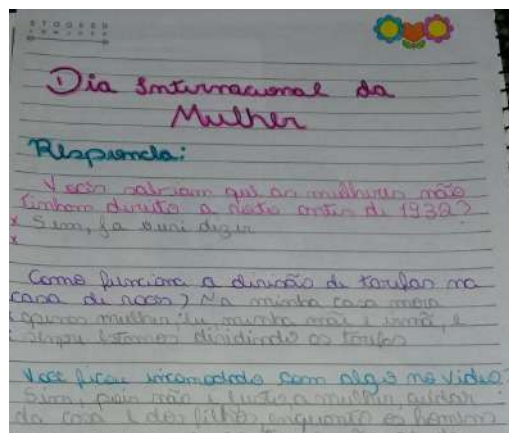 Dia Internacional da
Mulher
Responda:
Vocês sabiam que as mulheres não
tinham direito a voto antes de 1932?
x Sim, ja ouvi dizer
x
Como funciona a divisão de tarefas na
casa de voces? Na minha casa mora
apenas mulher, eu minha mãe e irmã, e
sempre estamos dividindo as tarefas
Você ficou incomodado com algo no video?
Sim, pois não é justo a mulher cuidar
da casa e dos filhos enquanto os homens